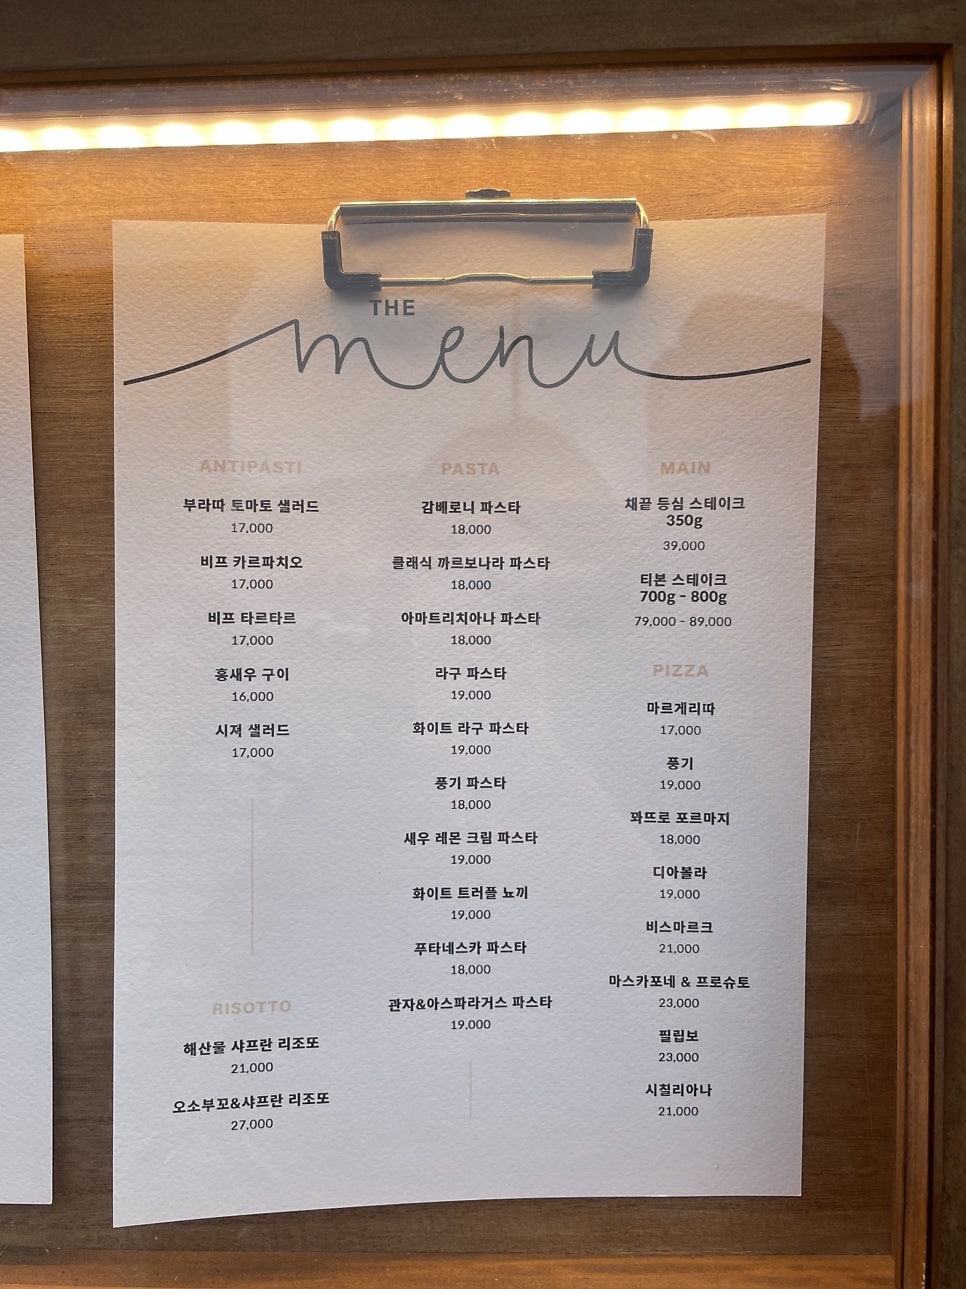 THE
menu
ANTIPASTI
부라따 토마토 샐러드
17,000
비프 카르파치오
17,000
비프 타르타르
17,000
홍새우 구이
16,000
시져 샐러드
17,000
RISOTTO
해산물 샤프란 리조또
21,000
오소부꼬&샤프란 리조또
27,000
PASTA
감베로니 파스타
18,000
클래식 까르보나라 파스타
18,000
아마트리치아나 파스타
18,000
라구 파스타
19,000
화이트 라구 파스타
19,000
풍기 파스타
18,000
새우 레몬 크림 파스타
19,000
화이트 트러플 뇨끼
19,000
푸타네스카 파스타
18,000
관자&아스파라거스 파스타
19,000
MAIN
채끝 등심 스테이크
350g
39,000
티본 스테이크
700g - 800g
79,000 - 89,000
PIZZA
마르게리따
17,000
풍기
19,000
꽈뜨로 포르마지
18,000
디아볼라
19,000
비스마르크
21,000
마스카포네 & 프로슈토
23,000
필립보
23,000
시칠리아나
21,000